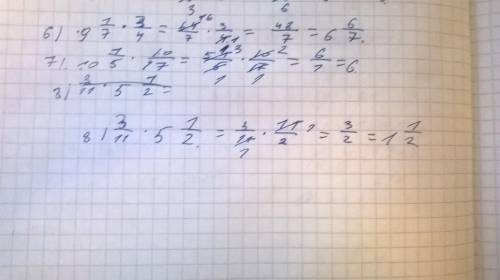 3 6
6) 9 1/7 · 3/4 = 64/7 · 3/4 = 48/7 = 6 6/7.
7) 10 1/5 · 10/17 = 51/5 · 10/17 = 6/1 = 6
3) 3/11 · 5 1/2 =
8) 3/11 · 5 1/2 = 3/11 · 11/2 = 3/2 = 1 1/2